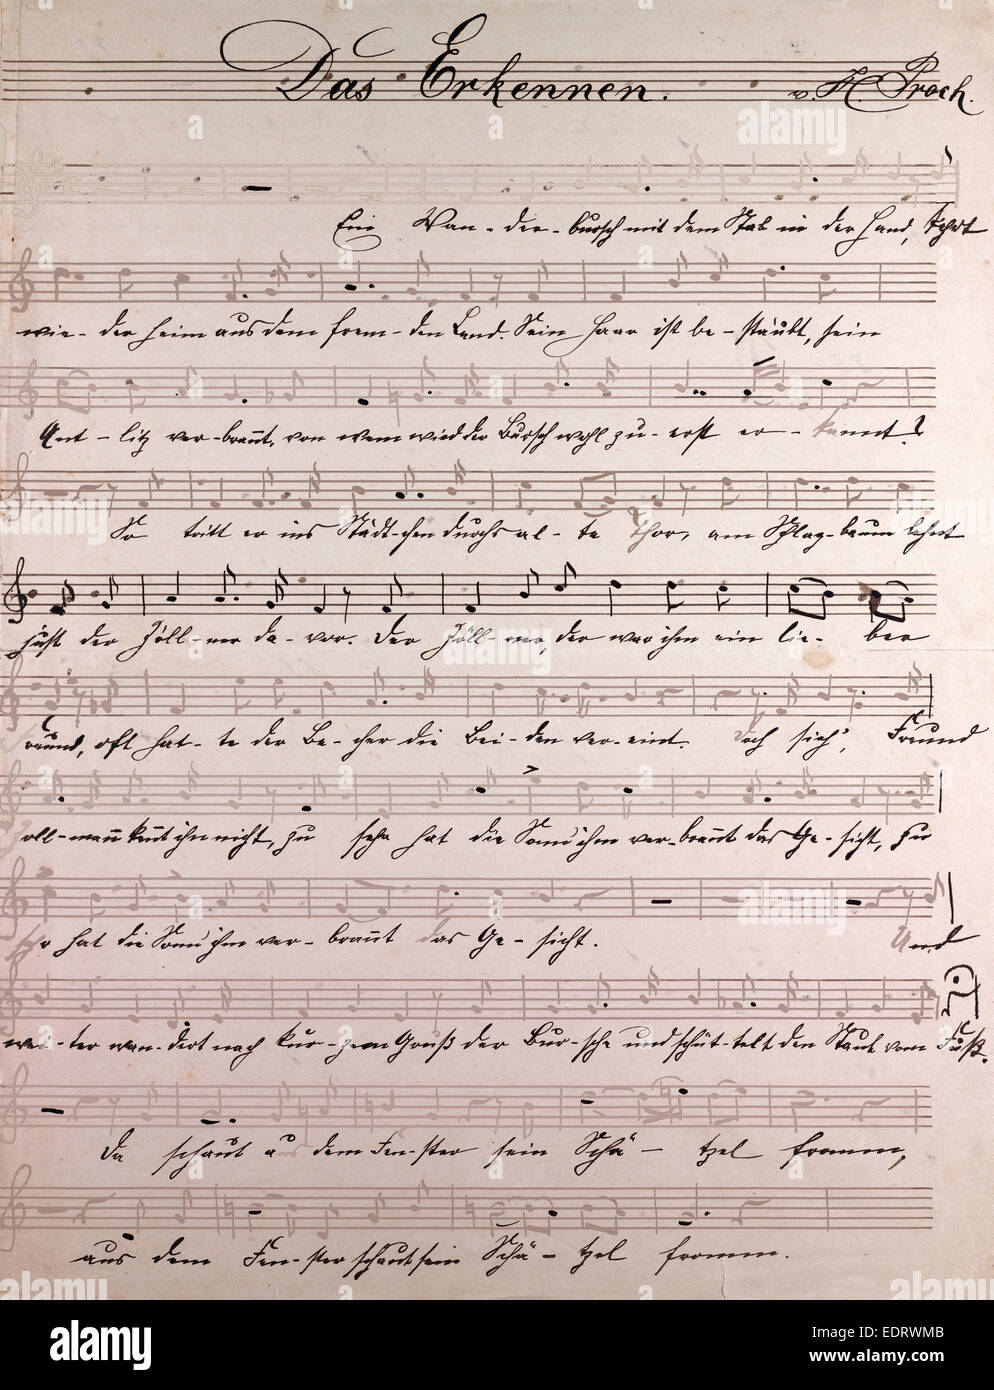 Das Erkennen. v. H. Proch.
Ein Wan-der-bursch mit dem Stab in der Hand, kehrt
wie-der heim aus dem frem-den Land. Sein Haar ist be-stäubt, sein
Ant-litz ver-brannt, von wem wird der Bursch wohl zu-erst er-kannt?
So tritt er ins Städt-chen durchs al-te Thor, am Schlag-baum lehnt
just der Zöll-ner da-vor. Der Zöll-ner, der war ihm ein lie-ber
reund, oft hat-te der Be-cher die Bei-den ver-eint. Doch sieh', Freund
oll-mann kennt ihn nicht, zu sehr hat die Sonn' ihm ver-brannt das Ge-sicht, zu
hr hat die Sonn' ihm ver-brannt das Ge-sicht. Und
wei-ter wan-dert nach kur-zem Gruß der Bur-sche und schüt-telt den Staub vom Fuß.
Da schaut aus dem Fen-ster sein Schä-tzel fromm,
aus dem Fen-ster schaut sein Schä-tzel fromm.
alamy
EDRWMB
www.alamy.com